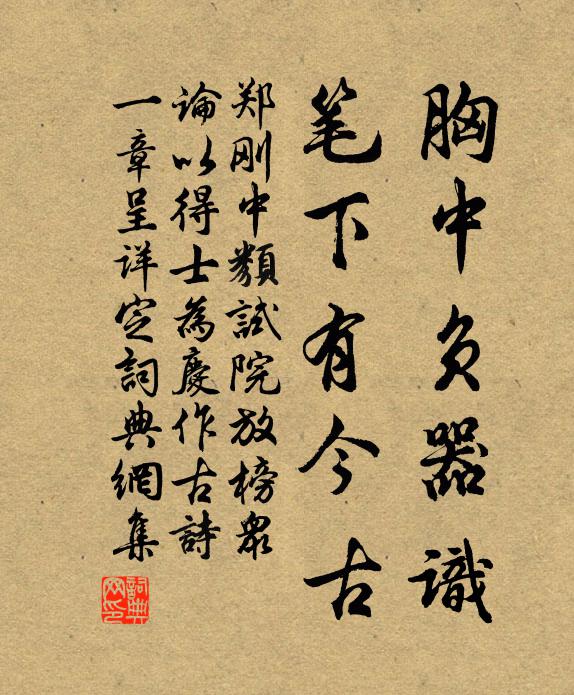 胸中負器識
笔下有今古
郑刚中類試院放榜眾
論以得士為慶作古詩
一章呈详定詞典網集
詞典网印